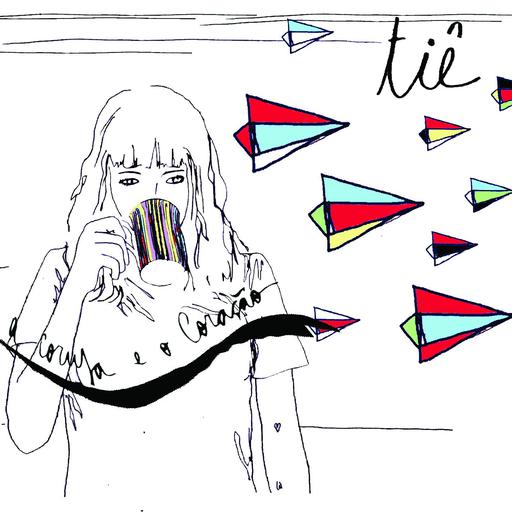 tiê
a coruja e o coração